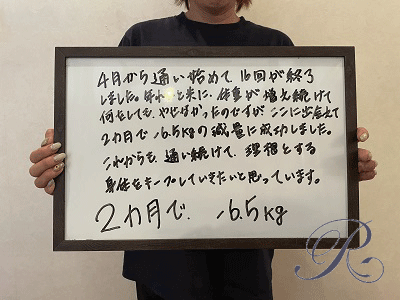 4月から通い始めて 16回が終了
しました。年齢と共に、体重が増え続けて
何をしても、やせなかったのですが、ここに出会えて
2ヵ月で -6.5kgの減量に成功しました。
これからも 通い続けて、理想とする
身体をキープしていきたいと思っています。
2ヵ月で. -6.5kg
R